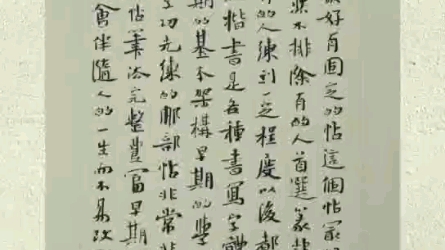 好有固定的帖這個帖
不排除有的人首選篆
的人練到一定程度以後都
楷書是各種書寫字體
期的基本架構早期的學
功先練的那部帖非常
帖筆法完整豐富早期
會伴隨人的一生而不易改